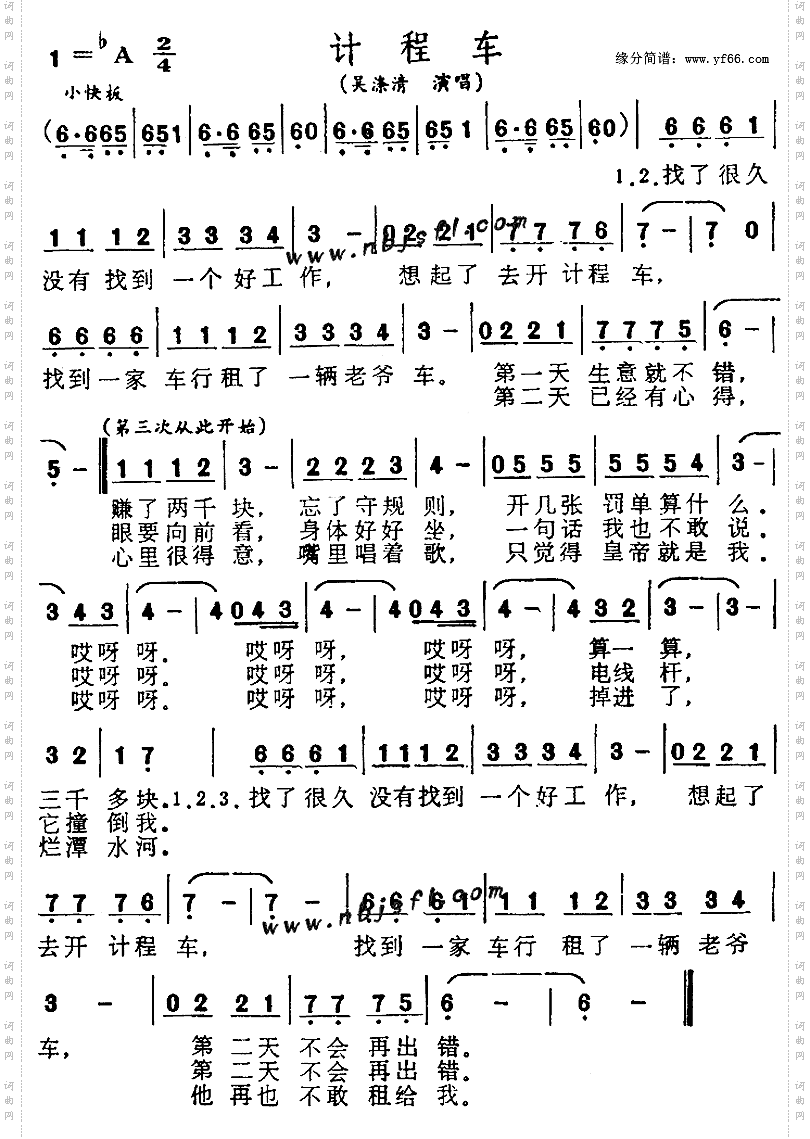 计 程 车
1=♭A 2/4
缘分简谱：www.yf66.com
(吴涤清 演唱)
小快板
(6·665 | 651 | 6·6 65 | 60 | 6·6 65 | 651 | 6·6 65 | 60) | 6 6 6 1
1.2.找了很久
1 1 1 2 | 3 3 3 4 | 3 - | 0 2 2 1 | 7 7 7 6 | 7 - | 7 0
www.nbjsfl.com
没有找到 一个好工作， 想起了 去开计程 车，
6 6 6 6 | 1 1 1 2 | 3 3 3 4 | 3 - | 0 2 2 1 | 7 7 7 5 | 6 -
找到一家 车行租了 一辆老爷 车。 第一天 生意就不 错，
第二天 已经有心 得，
(第三次从此开始)
5 - | 1 1 1 2 | 3 - | 2 2 2 3 | 4 - | 0 5 5 5 | 5 5 5 4 | 3 -
赚了两千块， 忘了守规 则， 开几张 罚单算什 么。
眼要向前 看， 身体好好 坐， 一句话 我也不敢 说。
心里很得 意， 嘴里唱着 歌， 只觉得 皇帝就是 我。
3 4 3 | 4 - | 4 0 4 3 | 4 - | 4 0 4 3 | 4 - | 4 3 2 | 3 - | 3 -
哎呀 呀。 哎呀 呀， 哎呀 呀， 算一 算，
哎呀 呀。 哎呀 呀， 哎呀 呀， 电线 杆，
哎呀 呀。 哎呀 呀， 哎呀 呀， 掉进 了，
3 2 | 1 7 | 6 6 6 1 | 1 1 1 2 | 3 3 3 4 | 3 - | 0 2 2 1
三千 多块.1.2.3.找了很久 没有找到 一个好工 作， 想起了
它撞 倒我。
烂潭 水河。
7 7 7 6 | 7 - | 7 - | 6 6 6 1 | 1 1 1 2 | 3 3 3 4
www.nbjsfl.com
去开 计程 车， 找到 一家 车行 租了 一辆 老爷
3 - | 0 2 2 1 | 7 7 7 5 | 6 - | 6 -
车， 第 二天 不会 再出 错。
第 二天 不会 再出 错。
他 再也 不敢 租给 我。
词曲网